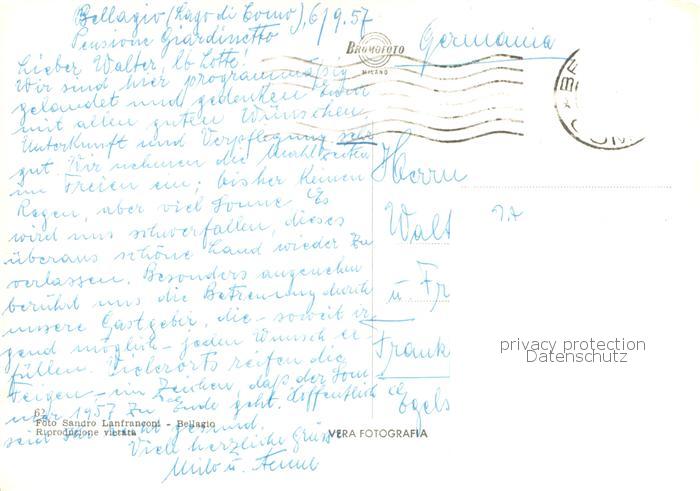 Bellagio (Lago di Como), 6/9.57
Pensione Giardinetto
Lieber Walter, lb Lotte!
Wir sind hier programmässig
gelandet und gedenken Euer
mit allen guten Wünschen.
Unterkunft und Verpflegung sehr
gut. Wir nehmen die Mahlzeiten
im Freien ein; bisher keinen
Regen, aber viel Sonne. Es
wird uns schwerfallen, dieses
überaus schöne Land wieder zu
verlassen. Besonders angenehm
berührt uns die Betreuung durch
unsere Gastgeber, die - soweit ir-
gend möglich - jeden Wunsch er-
füllen. Vielerorts reifen die
Feigen - ein Zeichen, daß der Som-
mer 1957 zu Ende geht. Hoffentlich
seid Ihr recht gesund.
Viele herzliche Grüsse
BROMOFOTO
MILANO
Germania
Herrn
Walt
u Fr
Frank
Egels
privacy protection
Datenschutz
62
Foto Sandro Lanfranconi - Bellagio
Riproduzione vietata
VERA FOTOGRAFIA